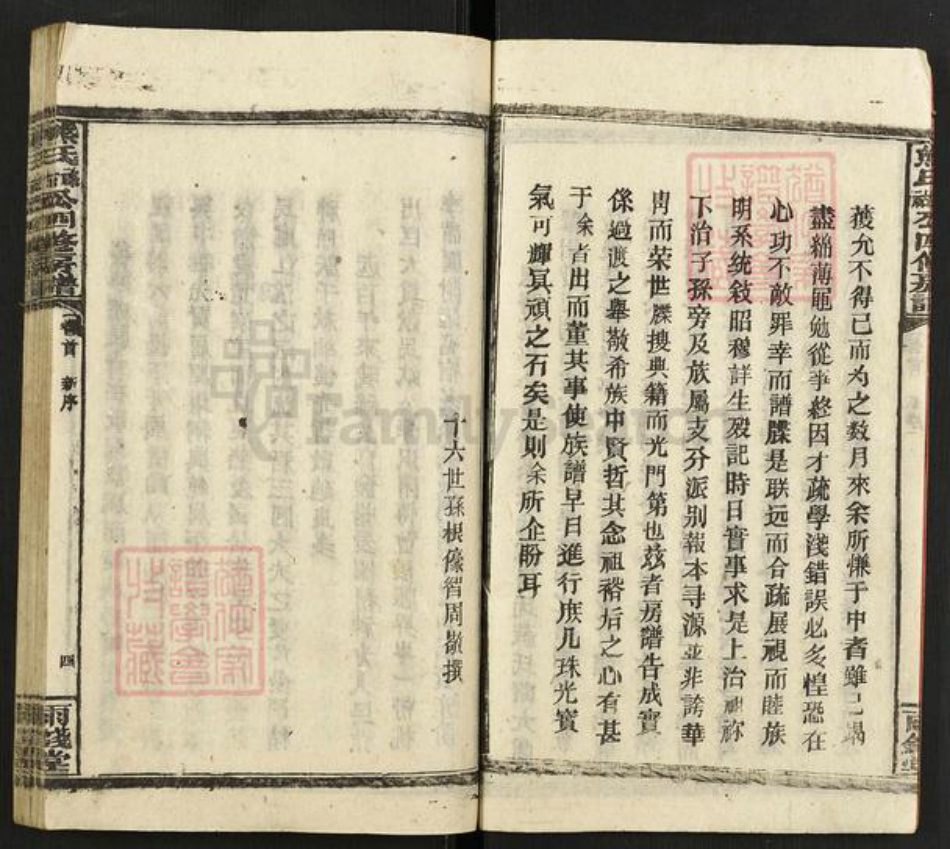 蒦允不得已而为之数月來余所慊于中者雖已竭
盡綿薄黽勉從事終因才疏學淺錯誤必多惶恐在
心功不敵罪幸而譜牒是联远而合疏展視而睦族
明系统敍昭穆詳生殁記時日實事求是上治祖祢
下治子孫旁及放属支分派别報本寻源並非誇華
胄而荣世牒搜典籍而光門第也兹者房譜告成實
係過渡之舉敬希族中賢哲其念祖裕后之心有甚
于余者出而董其事使族譜早日進行庶几珠光寳
氣可輝冥頑之石矣是則余所企盼耳
十六世孫根像智周敬撰
熊氏
公四修房譜
卷首 新序
四
雨錢堂
FamilySearch